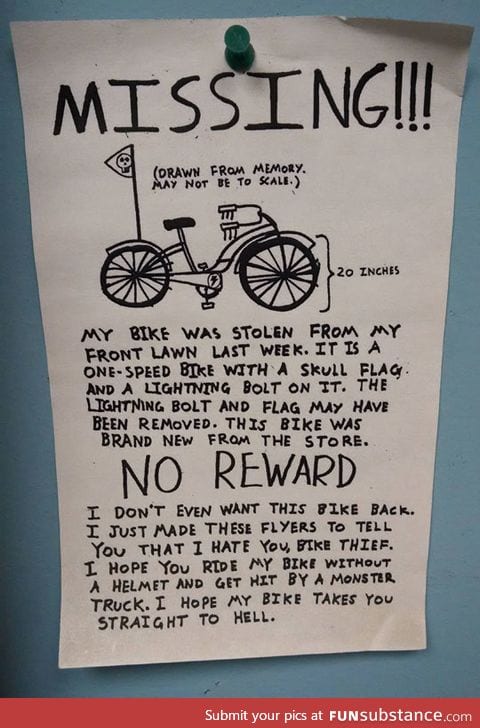 MISSING!!!
(DRAWN FROM MEMORY.
MAY NOT BE TO SCALE.)
20 INCHES
MY BIKE WAS STOLEN FROM MY
FRONT LAWN LAST WEEK. IT IS A
ONE-SPEED BIKE WITH A SKULL FLAG
AND A LIGHTNING BOLT ON IT. THE
LIGHTNING BOLT AND FLAG MAY HAVE
BEEN REMOVED. THIS BIKE WAS
BRAND NEW FROM THE STORE.
NO REWARD
I DON'T EVEN WANT THIS BIKE BACK.
I JUST MADE THESE FLYERS TO TELL
YOU THAT I HATE YOU, BIKE THIEF.
I HOPE YOU RIDE MY BIKE WITHOUT
A HELMET AND GET HIT BY A MONSTER
TRUCK. I HOPE MY BIKE TAKES YOU
STRAIGHT TO HELL.
Submit your pics at FUNsubstance.com